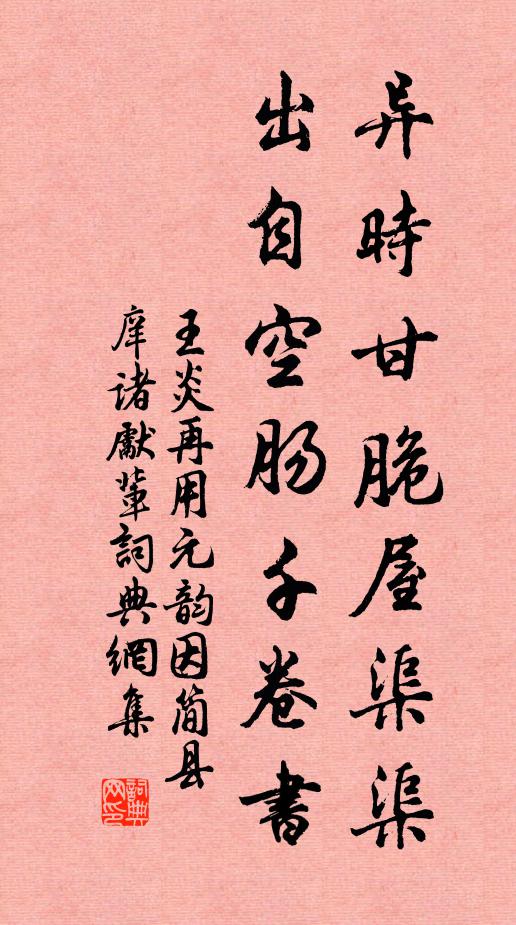 异時甘脆屋渠渠
出自空肠千卷書
王炎再用元韵因简县
庠诸獻輩詞典網集
詞典网印